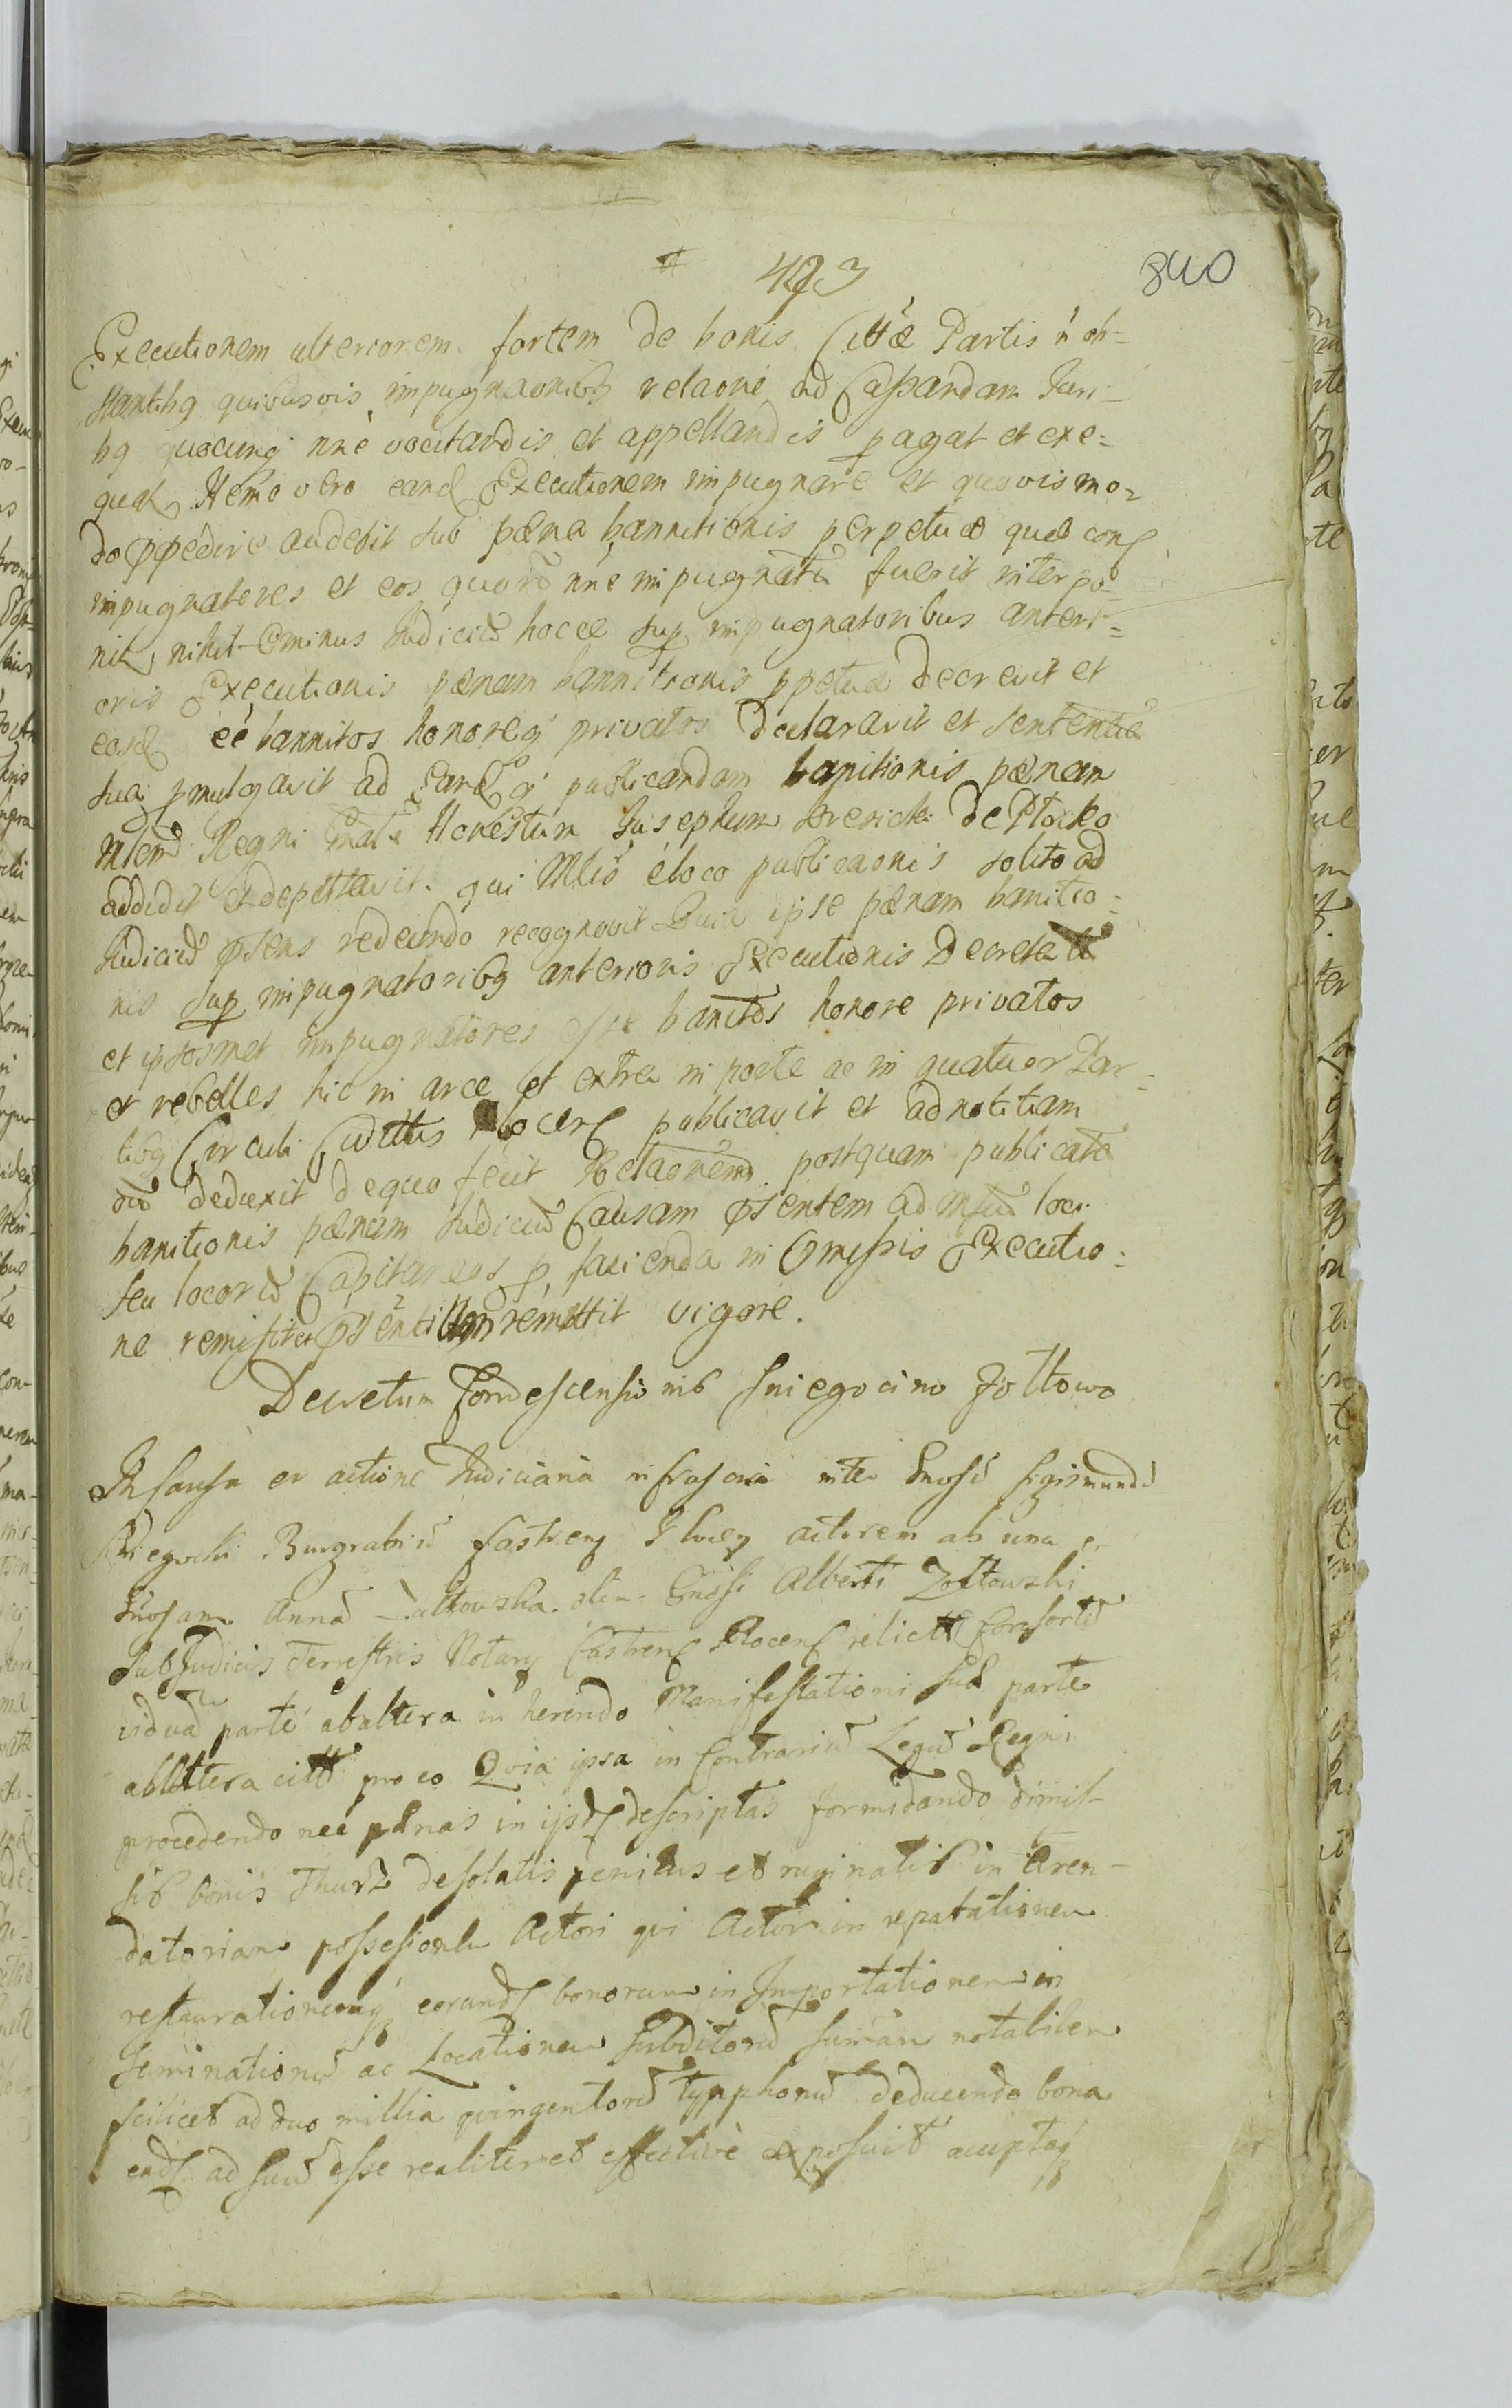 493 840
Executionem ulteriorem fortem de bonis Cittae Partis n̄ ob-
stantibq quibusvis impugnaonibq relaone ad Cassandam Juri-
bq quocunq nn̄e vocitandis et appellandis pagat et exe=
quat Nemo vero eand Executionem impugnare et quovis mo=
do ppedire audebit sub paena bannitionis perpetuae quae conc
impugnatores et eos quorū nn̄e impugnatū fuerit interpo-
nit, nihil-ominus Judiciū hocce sup impugnatoribus anteri=
oris Executionis paenam bannitionis ppetuae decrevit et
eosd eé bannitos honoreq privatos declaravit et sententia
sua pmulgavit ad eandq publicandam banitionis paenam
Mlem Regni Honestum Josephum de Plocko
addidit et deputavit. qui Mlis é loco publicaonis solito ad
Judiciū psens redeundo recognovit Quia ipse paenam banitio=
nis sup impugnatoribq anterioris Executionis Decreta
et ipsosmet impugnatores esse banitos honore privatos
et rebelles hic in arce et extra in porte ac in quatuor Par=
tibq Circuli Civittis Plocens publicavit et ad notitiam
duū deduxit de quo fecit Relaonem postquam publicata
banitionis paenam Judiciū Causam psentem ad loci
seu locorū Capitaneos p facienda in Omissis Executio=
ne remisit et psenti remittit vigore.
Decretum Condescensionis Sniegocino Żołtowo
In Causa et actione Judiciaria infrascria inter Gnosū Sigismundū
Sniegocki Burgrabiū Castren Plocen actorem ab una et
Gnosam Annā Zołtowska olim Gnosi Alberti Zołtowski
SubJudicis Terrestris Notary Castren Plocen relictā Consortē
viduā parte ab altera in herendo Manifestationi suā parte
ab altera citt pro eo Quia ipsa in Contrariū Legū Regni
procedendo nec paenas in ijsd descriptas formidando dimis-
sis bonis Thurz desolatis penitus et ruinatis in Aren-
datoriam possesionem Actori qui Actor in repatationem
restaurationemq eorund bonorum in Importationem in
seminationū ac Locationem Subditorū sumam notabilem
scilicet ad duo millia quingentorū tymphonū deducendo bona
ead ad suū esse realiter et effective exposuit acceptaq